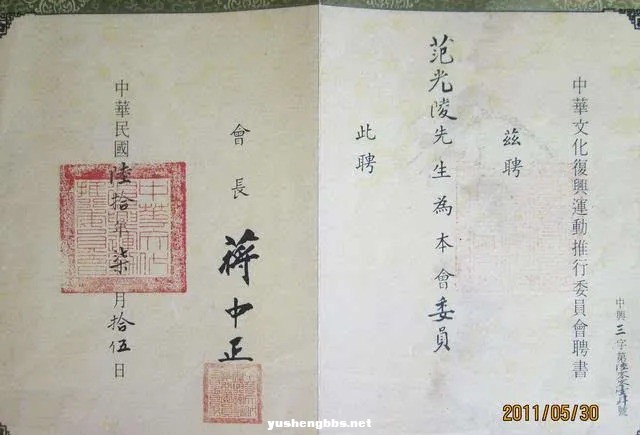 中華文化復興運動推行委員會聘書
中興三字第陸零零壹肆號
茲聘
范光陵先生為本會委員
此聘
會長
蔣中正
中華民國陸拾年柒月拾伍日
2011/05/30
yushengbbs.net